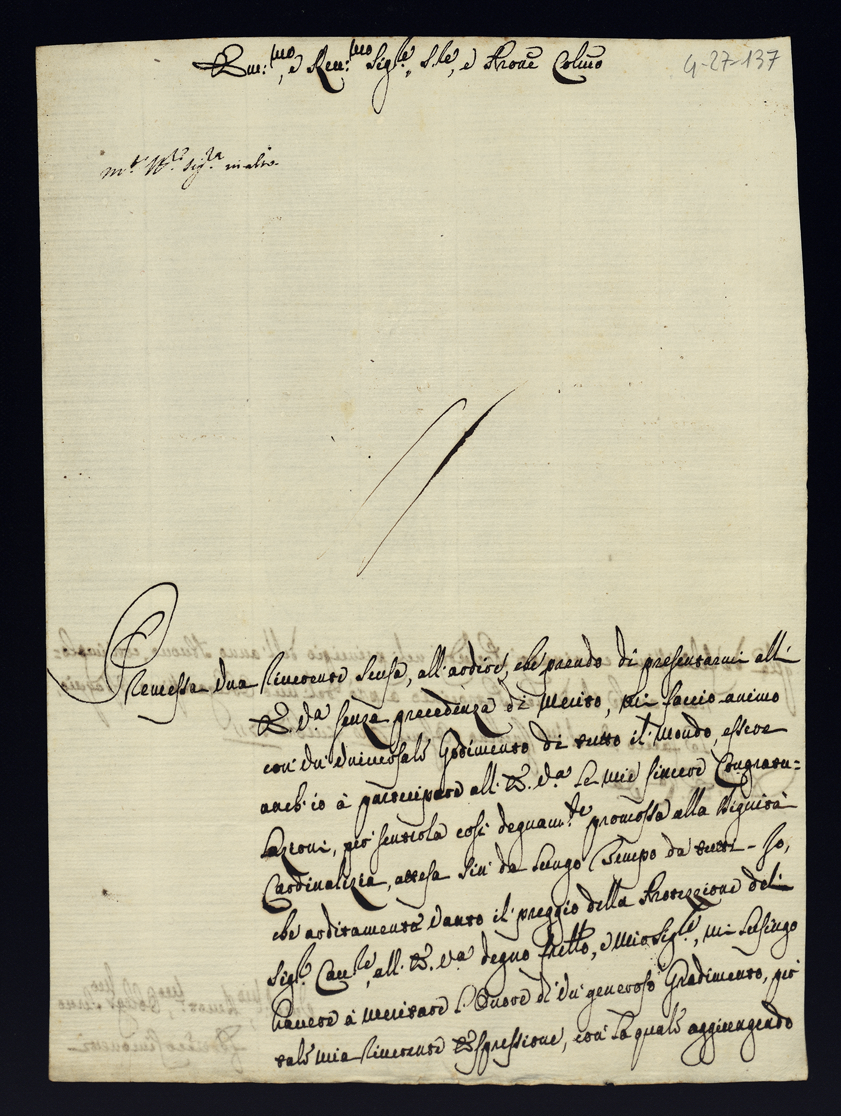 Em:mo, e Reu:mo Sig:re, S:re, e Prone Colmo
4-27-137
Premessa vna riuerente scusa, all'ardire, che prendo di presentarmi all'
E. V.a senza precedenza di merito, mi faccio animo
con vn' vniuersale godimento di tutto il mondo, essere
anch'io à partecipare all'E. V.a le mie sincere Congratu=
lazioni, per sentirla così degnam.te promossa alla Dignità
Cardinalizia, attesa sin' da lungo Tempo da tutti – Io,
che arditamente vanto il preggio della Protezzione del
Sig.r Cau.re, all'E. V.a degno fratello, e mio Sig.re, mi lusingo
hauere à meritare l'Onore di vn' generoso Gradimento, per
tale mia riuerente Espressione, con la quale aggiungendo